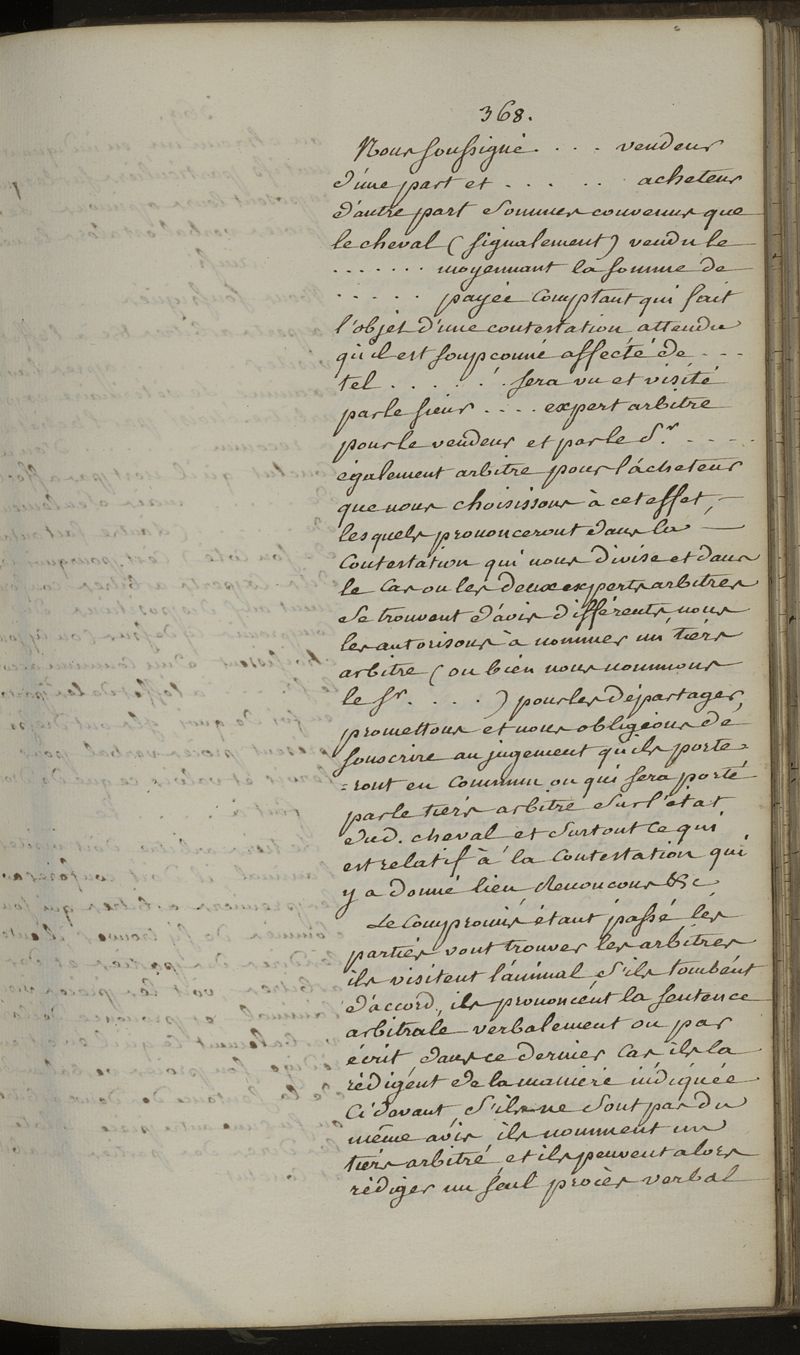 368.
Nous soussigné . . . vendeur
d'une part et . . . . . acheteur
d'autre part sommes convenus que
le cheval (signalement) vendu le
. . . . . . . moyennant la somme de
. . . . . payée comptant qui fait
l'objet d'une contestation attendu
qu'il est soupconné affecté de - - -
tel . . . . . . sera vu et visité
par le sieur . . . . expert arbitre
pour le vendeur et par le S.r - - - -
également arbitre pour l'acheteur
que nous choisissons à cet effet, —
lesquels prononceront dans la —
contestation qui nous divise et dans
le cas ou les deux experts arbitres
se trouvent d'avis différents nous
les autorisons à nommer un tiers
arbitre (ou bien nous nommons
le Sr. . . . . ) pour les départager,
promettons et nous obligeons de
souscrire au jugement qu'ils porte=
=ront en commun ou qui sera porté
par le tiers arbitre sur l'état
dud. cheval et surtout ce qui
est relatif à la contestation qui
y a donné lieu Renoncons &c
Le compromis étant passé les
parties vont trouver les arbitres
ils visitent l'animal s'ils tombent
d'accord, ils prononcent la sentence
arbitrale verbalement ou par
écrit, dans ce dernier cas ils la
rédigent de la maniere indiquée
ci devant s'ils ne sont pas du
même avis ils nomment un
tiers arbitre et ils peuvent alors
rédiger un seul procès verbal